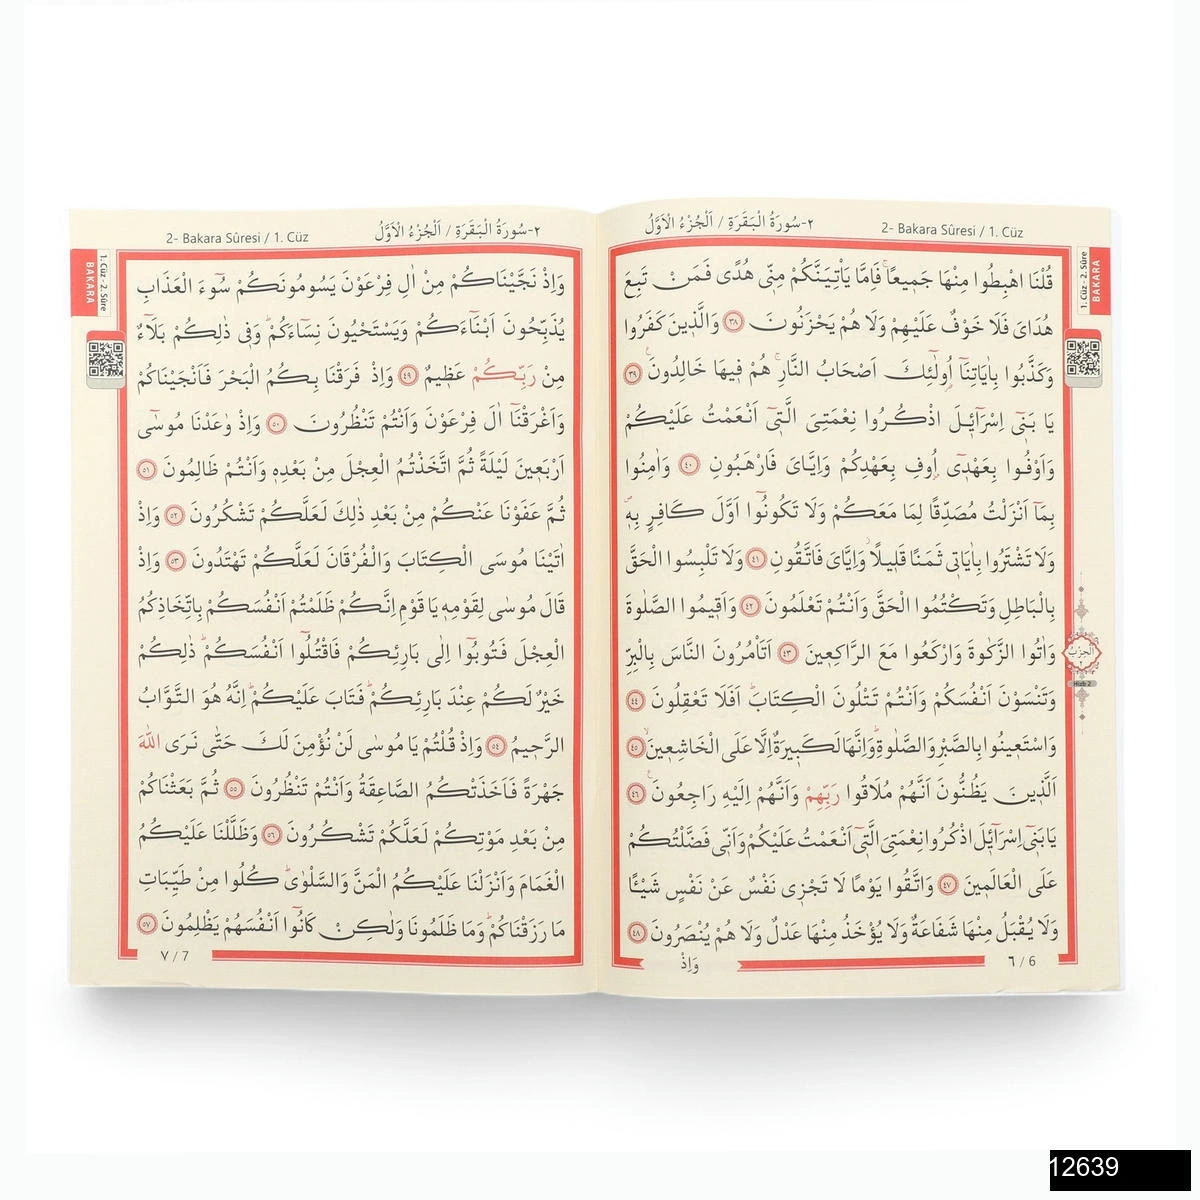 ٢-سُورَةُ الْبَقَرَةِ / اَلْجُزْءُ الْاَوَّلُ 2- Bakara Sûresi / 1. Cüz
1. Cüz - 2. Sûre
BAKARA
قُلْنَا اهْبِطُوا مِنْهَا جَمٖيعاًۚ فَاِمَّا يَأْتِيَنَّكُمْ مِنّٖى هُدًى فَمَنْ تَبِعَ
هُدَاىَ فَلَا خَوْفٌ عَلَيْهِمْ وَلَا هُمْ يَحْزَنُونَ ﴿٣٨﴾ وَالَّذٖينَ كَفَرُوا
وَكَذَّبُوا بِاٰيَاتِنَٓا اُو۬لٰٓئِكَ اَصْحَابُ النَّارِۚ هُمْ فٖيهَا خَالِدُونَ۟ ﴿٣٩﴾
يَا بَنٖٓى اِسْرَٓائٖلَ اذْكُرُوا نِعْمَتِىَ الَّتٖٓى اَنْعَمْتُ عَلَيْكُمْ
وَاَوْفُوا بِعَهْدٖٓى اُو۫فِ بِعَهْدِكُمْ وَاِيَّاىَ فَارْهَبُونِ ﴿٤٠﴾ وَاٰمِنُوا
بِمَٓا اَنْزَلْتُ مُصَدِّقاً لِمَا مَعَكُمْ وَلَا تَكُونُٓوا اَوَّلَ كَافِرٍ بِهٖۖ
وَلَا تَشْتَرُوا بِاٰيَاتٖى ثَمَناً قَلٖيلاًۘ وَاِيَّاىَ فَاتَّقُونِ ﴿٤١﴾ وَلَا تَلْبِسُوا الْحَقَّ
بِالْبَاطِلِ وَتَكْتُمُوا الْحَقَّ وَاَنْتُمْ تَعْلَمُونَ ﴿٤٢﴾ وَاَقٖيمُوا الصَّلٰوةَ
وَاٰتُوا الزَّكٰوةَ وَارْكَعُوا مَعَ الرَّاكِعٖينَ ﴿٤٣﴾ اَتَأْمُرُونَ النَّاسَ بِالْبِرِّ
وَتَنْسَوْنَ اَنْفُسَكُمْ وَاَنْتُمْ تَتْلُونَ الْكِتَابَۜ اَفَلَا تَعْقِلُونَ ﴿٤٤﴾
وَاسْتَعٖينُوا بِالصَّبْرِ وَالصَّلٰوةِۜ وَاِنَّهَا لَكَبٖيرَةٌ اِلَّا عَلَى الْخَاشِعٖينَۙ ﴿٤٥﴾
اَلَّذٖينَ يَظُنُّونَ اَنَّهُمْ مُلَاقُوا رَبِّهِمْ وَاَنَّهُمْ اِلَيْهِ رَاجِعُونَ۟ ﴿٤٦﴾
يَا بَنٖٓى اِسْرَٓائٖلَ اذْكُرُوا نِعْمَتِىَ الَّتٖٓى اَنْعَمْتُ عَلَيْكُمْ وَاَنّٖى فَضَّلْتُكُمْ
عَلَى الْعَالَمٖينَ ﴿٤٧﴾ وَاتَّقُوا يَوْماً لَا تَجْزٖى نَفْسٌ عَنْ نَفْسٍ شَيْـٔاً
وَلَا يُقْبَلُ مِنْهَا شَفَاعَةٌ وَلَا يُؤْخَذُ مِنْهَا عَدْلٌ وَلَا هُمْ يُنْصَرُونَ ﴿٤٨﴾
اَلْحِزْبُ
٢
Hizb 2
٦ / 6
وَاِذْ
٢-سُورَةُ الْبَقَرَةِ / اَلْجُزْءُ الْاَوَّلُ 2- Bakara Sûresi / 1. Cüz
1. Cüz - 2. Sûre
BAKARA
وَاِذْ نَجَّيْنَاكُمْ مِنْ اٰلِ فِرْعَوْنَ يَسُومُونَكُمْ سُٓوءَ الْعَذَابِ
يُذَبِّحُونَ اَبْنَٓاءَكُمْ وَيَسْتَحْيُونَ نِسَٓاءَكُمْۜ وَفٖى ذٰلِكُمْ بَلَٓاءٌ
مِنْ رَبِّكُمْ عَظٖيمٌ ﴿٤٩﴾ وَاِذْ فَرَقْنَا بِكُمُ الْبَحْرَ فَاَنْجَيْنَاكُمْ
وَاَغْرَقْنَٓا اٰلَ فِرْعَوْنَ وَاَنْتُمْ تَنْظُرُونَ ﴿٥٠﴾ وَاِذْ وٰعَدْنَا مُوسٰٓى
اَرْبَعٖينَ لَيْلَةً ثُمَّ اتَّخَذْتُمُ الْعِجْلَ مِنْ بَعْدِهٖ وَاَنْتُمْ ظَالِمُونَ ﴿٥١﴾
ثُمَّ عَفَوْنَا عَنْكُمْ مِنْ بَعْدِ ذٰلِكَ لَعَلَّكُمْ تَشْكُرُونَ ﴿٥٢﴾ وَاِذْ
اٰتَيْنَا مُوسَى الْكِتَابَ وَالْفُرْقَانَ لَعَلَّكُمْ تَهْتَدُونَ ﴿٥٣﴾ وَاِذْ
قَالَ مُوسٰى لِقَوْمِهٖ يَا قَوْمِ اِنَّكُمْ ظَلَمْتُمْ اَنْفُسَكُمْ بِاتِّخَاذِكُمُ
الْعِجْلَ فَتُوبُٓوا اِلٰى بَارِئِكُمْ فَاقْتُلُٓوا اَنْفُسَكُمْۜ ذٰلِكُمْ
خَيْرٌ لَكُمْ عِنْدَ بَارِئِكُمْۜ فَتَابَ عَلَيْكُمْۜ اِنَّهُ هُوَ التَّوَّابُ
الرَّحٖيمُ ﴿٥٤﴾ وَاِذْ قُلْتُمْ يَا مُوسٰى لَنْ نُؤْمِنَ لَكَ حَتّٰى نَرَى اللّٰهَ
جَهْرَةً فَاَخَذَتْكُمُ الصَّاعِقَةُ وَاَنْتُمْ تَنْظُرُونَ ﴿٥٥﴾ ثُمَّ بَعَثْنَاكُمْ
مِنْ بَعْدِ مَوْتِكُمْ لَعَلَّكُمْ تَشْكُرُونَ ﴿٥٦﴾ وَظَلَّلْنَا عَلَيْكُمُ
الْغَمَامَ وَاَنْزَلْنَا عَلَيْكُمُ الْمَنَّ وَالسَّلْوٰىۜ كُلُوا مِنْ طَيِّبَاتِ
مَا رَزَقْنَاكُمْۜ وَمَا ظَلَمُونَا وَلٰكِنْ كَانُٓوا اَنْفُسَهُمْ يَظْلِمُونَ ﴿٥٧﴾
٧ / 7
12639